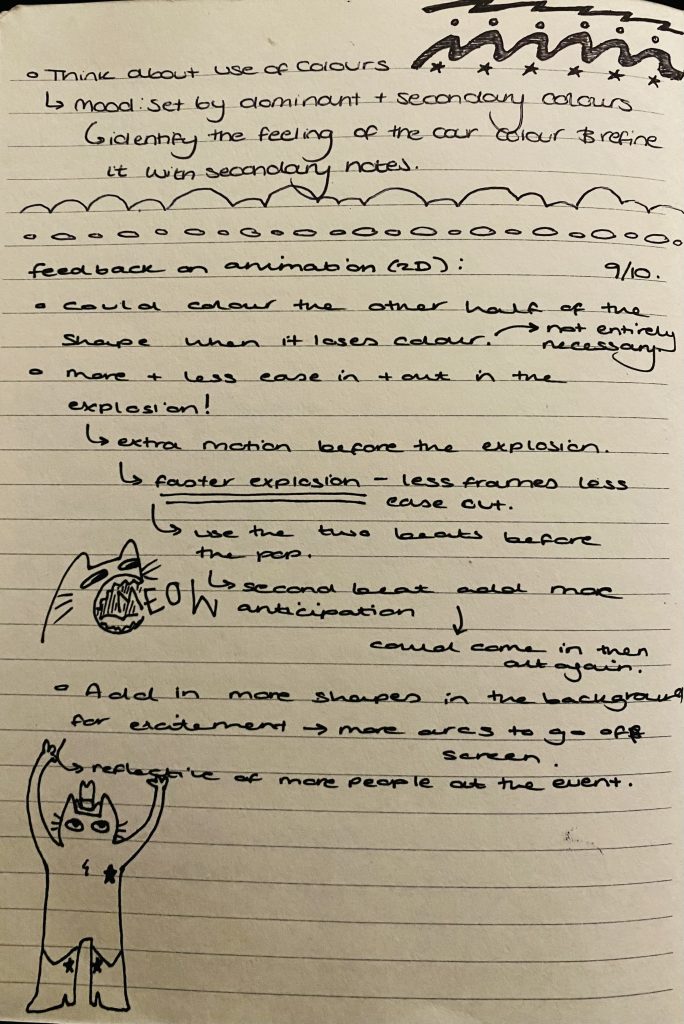 • Think about use of colours
↳ mood: set by dominant + secondary colours
↳ identify the feeling of the colour & refine
it with secondary notes.
feedback on animation (2D): 9/10.
• could colour the other half of the
shape when it loses colour. → not entirely
necessary.
• more + less ease in + out in the
explosion!
↳ extra motion before the explosion.
↳ faster explosion - less frames less
ease out.
↳ use the two beats before
the pop.
MEOW
↳ second beat add more
anticipation
↓
could come in then
out again.
• Add in more shapes in the background
for excitement → more arcs to go off
screen.
↳ reflective of more people at the event.